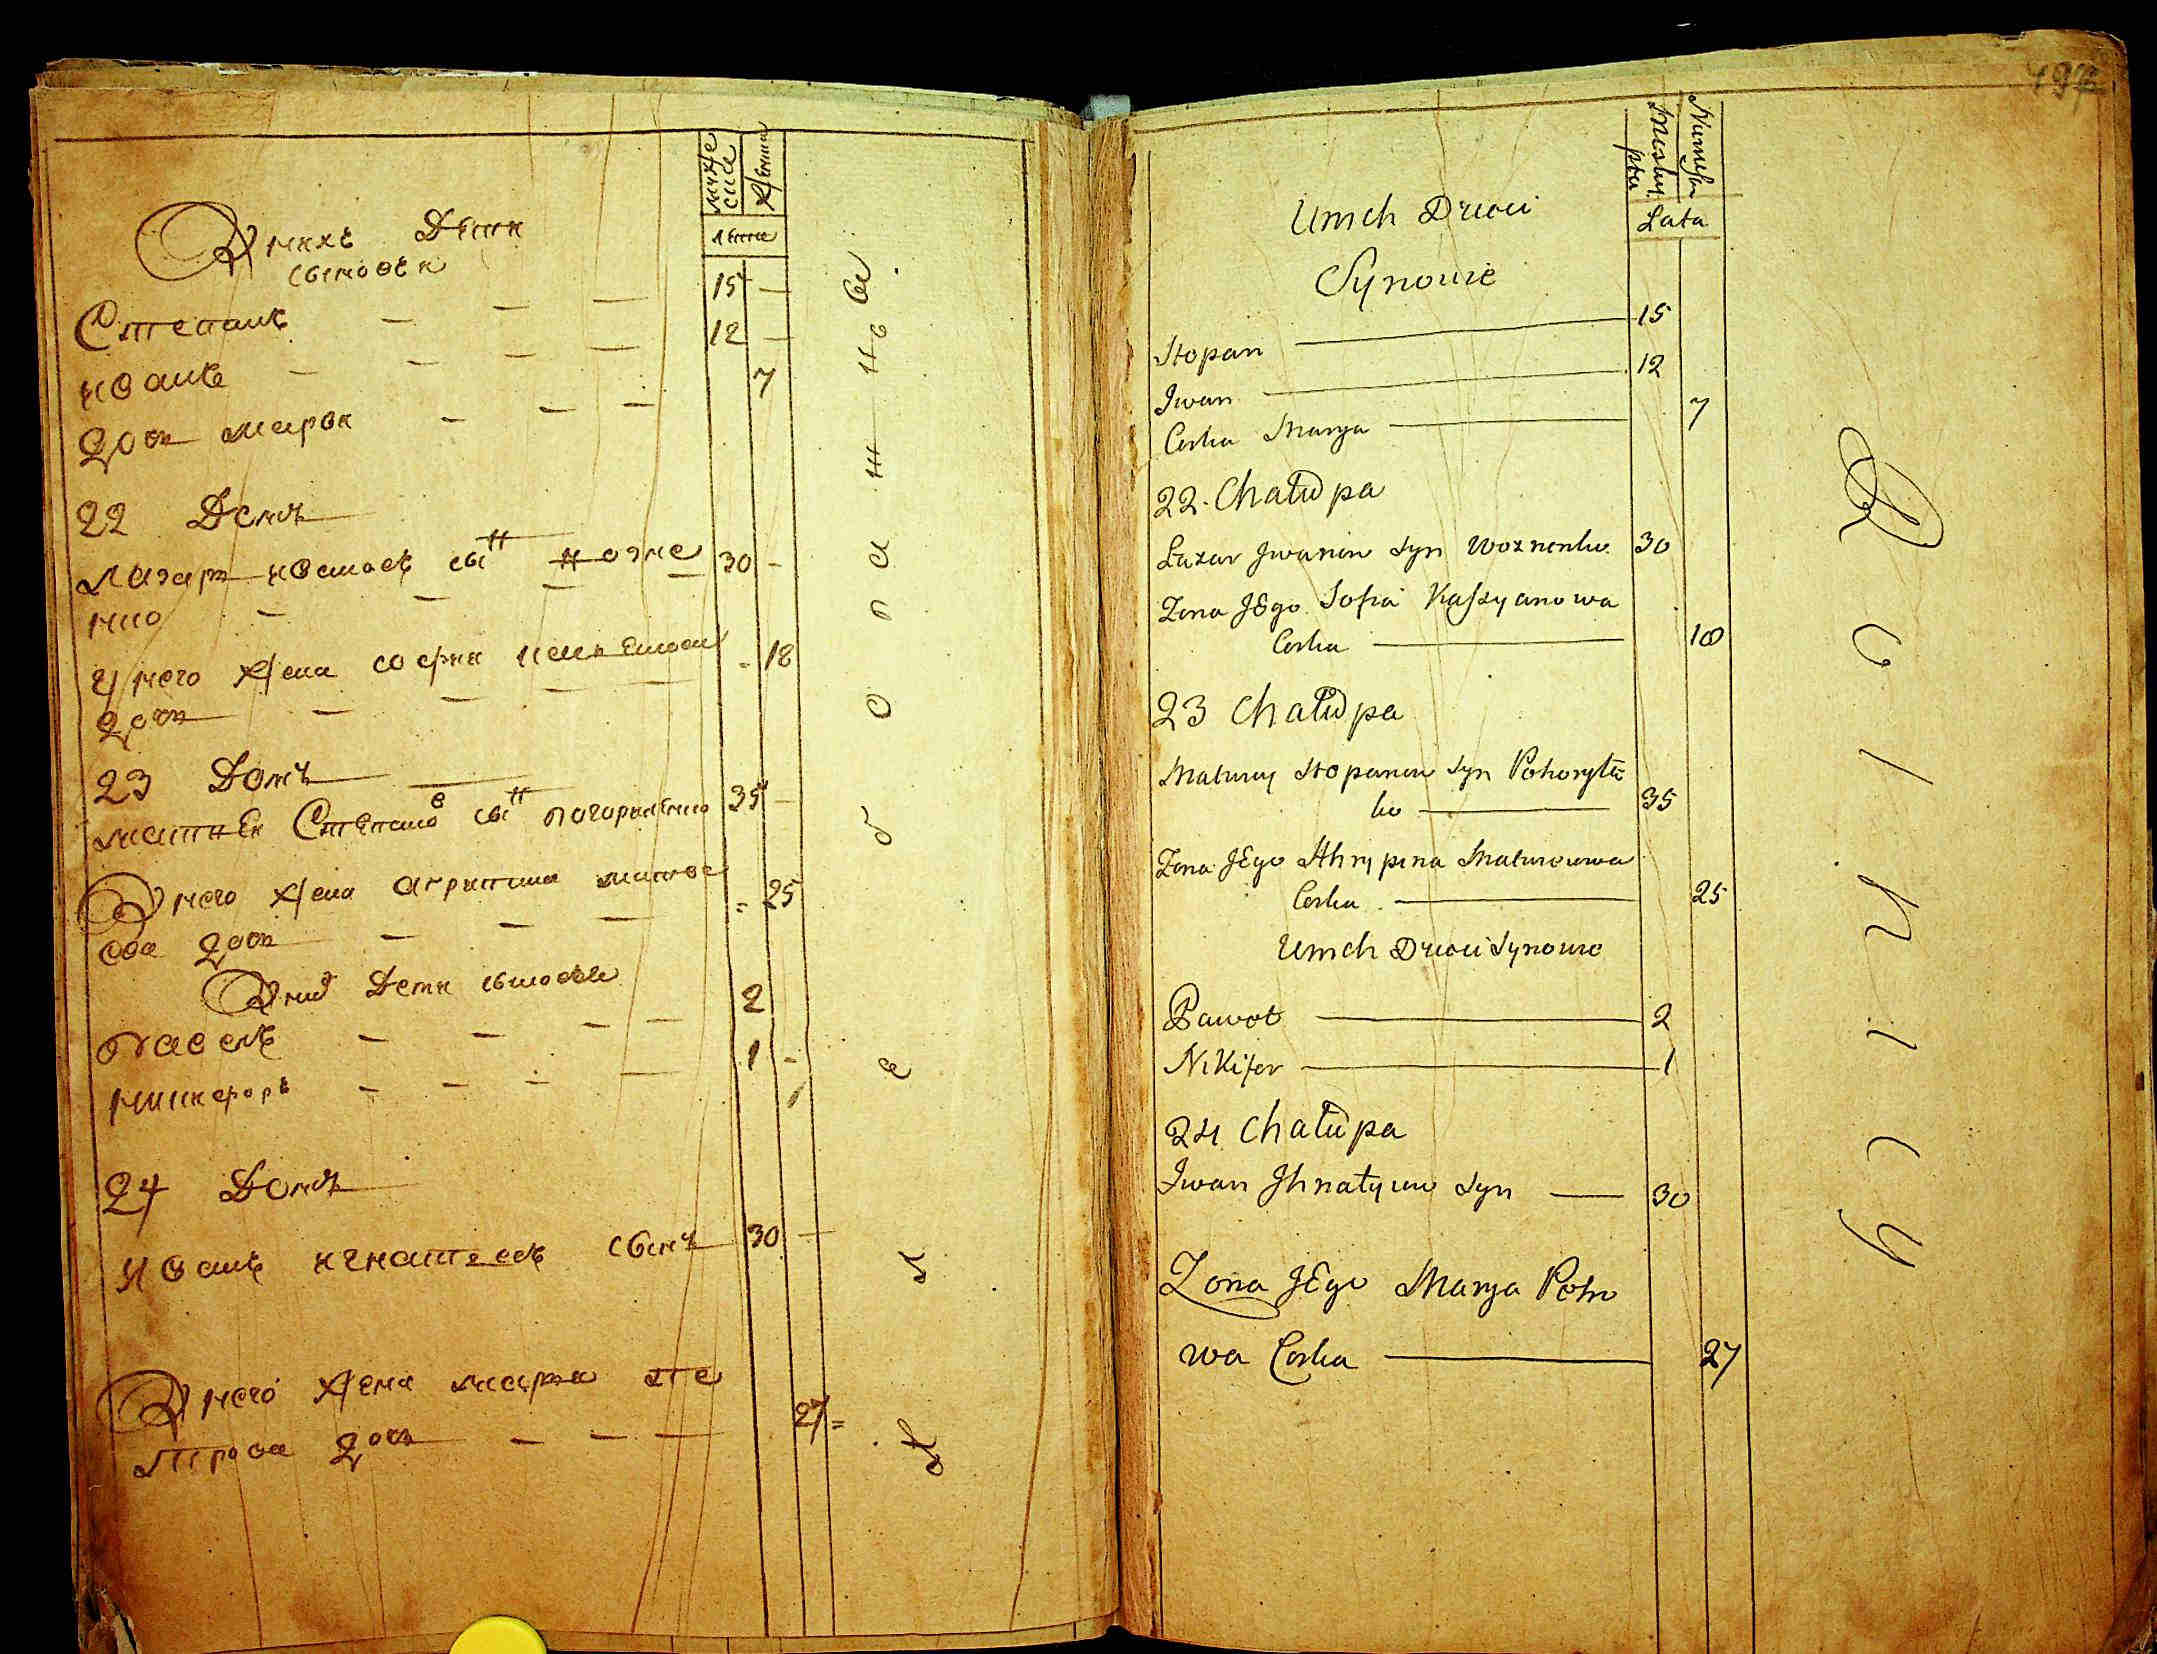 мужеска
женска
лета
У нихъ Дети
сыновеи
Степанъ — — — 15 —
иванъ — — — — 12 —
дочь мария — — — 7
22 Домъ
Лазарь ивановъ сын возне 30 -
нко
У него жена софия касияновa - 18
дочь — — — —
23 Домъ
матвеи Степановъ сын погориленко 35 -
У него жена агрипина матвее = 25
ова дочь — — —
У ниx Дети сыновеи
павелъ — — — — 2
никифоръ — — — — 1 -
24 Домъ
Иванъ игнатьевъ сынъ 30 —
У него жена мария пе
трова дочь — — — 27 =
197
Męska
płeć
Niewieścia
Lata
U nich Dzieci
Synowie
Stopan — 15
Jwan — 12
Corka Marya — 7
22. Chałupa
Łazar Jwanow Syn Woznenko 30
Zona JEgo Sofia Kaszyanowa
Corka — 18
23 Chałupa
Matwiy Stopanow Syn Pohoryłe
ko — 35
Zona JEgo Ahrypina Matwiowa
Corka — 25
U nich Dzieci Synowie
Paweł — 2
Nikifor — 1
24 Chałupa
Iwan Jhnatyiow Syn — 30
Zona JEgo Marya Petro
wa Corka — 27
R o l n i c y